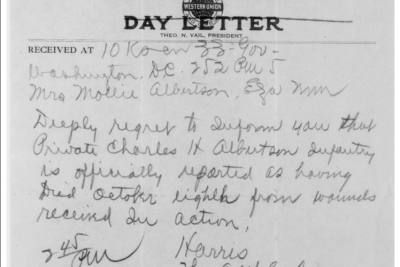 WESTERN UNION
DAY LETTER
THEO. N. VAIL, PRESIDENT
RECEIVED AT 10 Ko cn 33 Gov-
Washington, DC. 252 PM 5
Mrs Mollie Albertson,
Deeply regret to inform you that
Private Charles H Albertson Infantry
is officially reported as having
Died October eighth from wounds
received in action,
Harris
245 PM